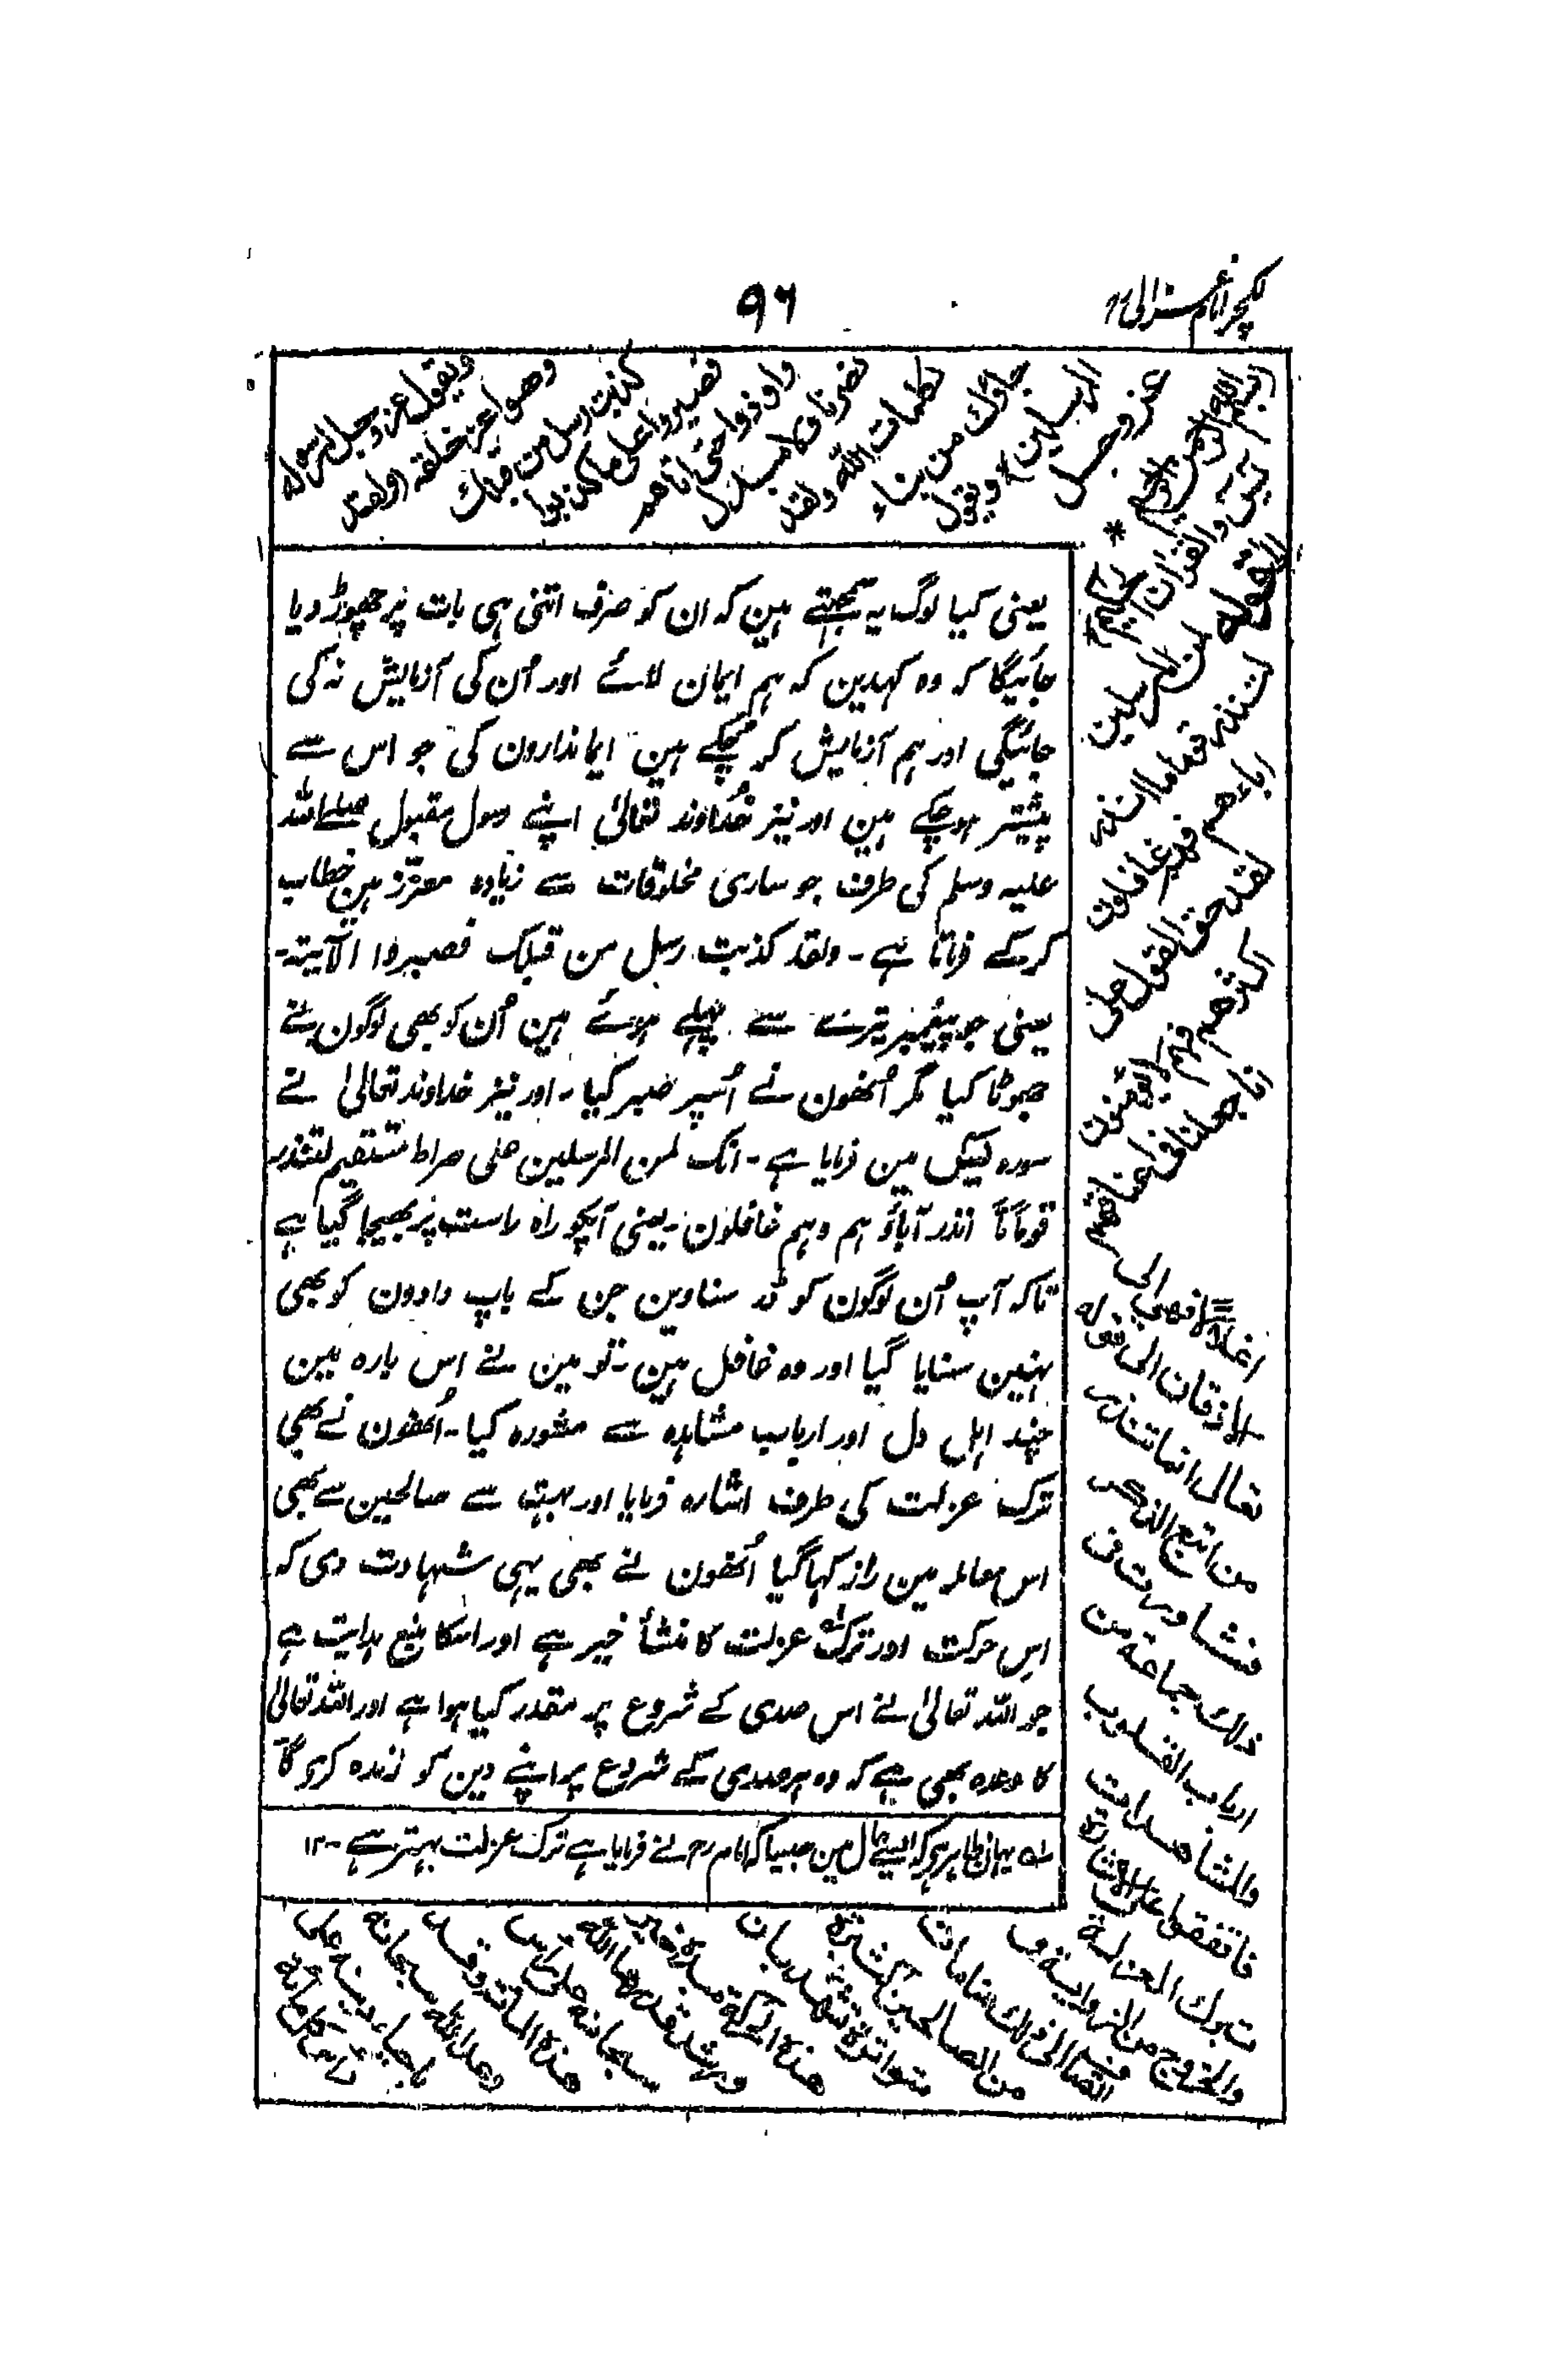 لکچر امام غزالی
۹۶
ويقول عز وجل لرسوله
وهو اعز خلقه ولقد
كذبت رسل من قبلك
فصبروا على ما كذبوا
واوذوا حتى اتاهم
نصرنا ولا مبدل
لكلمات الله ولقد
جاءك من نباء
المرسلين * ويقول
عز وجل
بسم الله الرحمن الرحيم *
يس والقرآن الحكيم
الى قوله
لمن المرسلين
لتنذر قوما ما انذر
اباءهم فهم غافلون
لقد حق القول على
اكثرهم فهم لا يؤمنون
انا جعلنا فى اعناقهم
اغلالا فهى الى
الاذقان الى قوله
تعالى انما تنذر
من اتبع الذكر
فشاورت فى
ذلك جماعة من
ارباب القلوب
والمشاهدات
فاتفقوا على الاشارة
بترك العزلة
والخروج من الزاوية و
انضاف الى ذلك منامات
من الصالحين كثيرة
متواترة تشهد بان
هذه الحركة مبدء خير
ورشد قدرها الله
سبحانه على رأس
هذه المائة وقد
وعد الله سبحانه
باحياء دينه على
رأس كل مائة
یعنی کیا لوگ یہ سمجھتے ہین کہ ان کو صرف اتنی ہی بات پر چھوڑ دیا
جائیگا کہ وہ کہدین کہ ہم ایمان لائے اور اُن کی آزمایش نہ کی
جائیگی اور ہم آزمایش کر چکے ہین ایماندارون کی جو اس سے
پیشتر ہوچکے ہین اور نیز خداوند تعالیٰ اپنے رسول مقبول صلے اللہ
علیہ وسلم کی طرف جو ساری مخلوقات سے زیادہ معزز ہین خطاب
کرکے فرماتا ہے۔ ولقد کذبت رسل من قبلک فصبروا الآیۃ۔
یعنی جو پیغمبر تیرے سے پہلے ہوئے ہین اُن کو بھی لوگون نے
جھوٹا کہا مگر اُنھون نے اُسپر صبر کیا۔ اور نیز خداوند تعالیٰ نے
سورہ یٰسٓ مین فرمایا ہے۔ انک لمن المرسلین علی صراط مستقیم لتنذر
قوماً مّا انذر آباؤ ہم وہم غافلون۔ یعنی آپکو راہ راست پر بھیجا گیا ہے
تاکہ آپ اُن لوگون کو ڈر سناوین جن کے باپ دادون کو بھی
نہین سنایا گیا اور وہ غافل ہین۔ تو مین نے اس بارہ مین
چند اہل دل اور ارباب مشاہدہ سے مشورہ کیا۔ اُنھون نے بھی
ترک عزلت کی طرف اشارہ فرمایا اور بہت سے صالحین سے بھی
اس معاملہ مین راز کہا گیا اُنھون نے بھی یہی شہادت دی کہ
اِس حرکت اور ترک عزلت کا منشأ خیر ہے اور اسکا منبع ہدایت ہے
جو اللہ تعالیٰ نے اس صدی کے شروع پر مقدر کیا ہوا ہے اور اللہ تعالیٰ
کا وعدہ بھی ہے کہ وہ ہر صدی کے شروع پر اپنے دین کو زندہ کریگا
لہ یہان ظاہر ہی کہ ایسے حال مین جیسا کہ امام رح نے فرمایا ہے ترک عزلت بہتر ہے۔ ۱۲